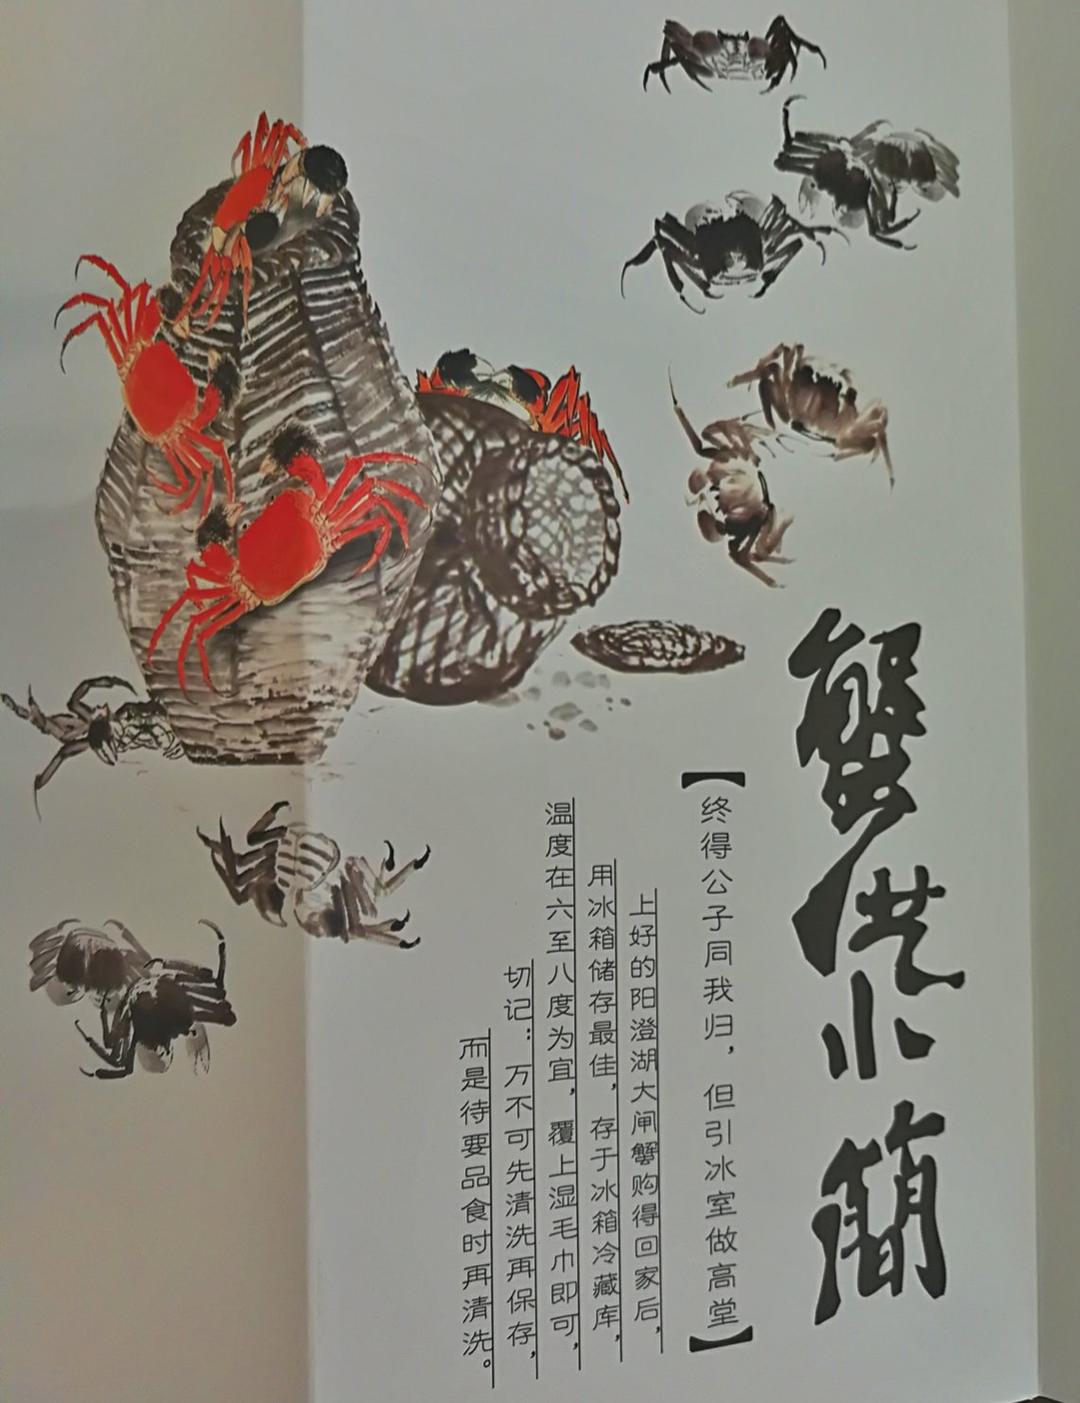 蟹供小簡
【终得公子同我归，但引冰室做高堂】
上好的阳澄湖大闸蟹购得回家后，
用冰箱储存最佳，存于冰箱冷藏库，
温度在六至八度为宜，覆上湿毛巾即可，
切记：万不可先清洗再保存，
而是待要品食时再清洗。